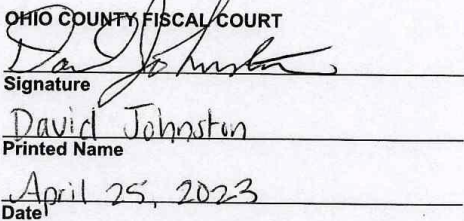 OHIO COUNTY FISCAL COURT
David Johnston
Signature
David Johnston
Printed Name
April 25, 2023
Date